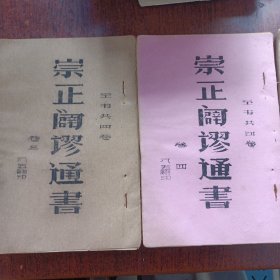 崇正闢謬通書
全書共四卷
卷三
崇正闢謬通書
全書共四卷
卷四